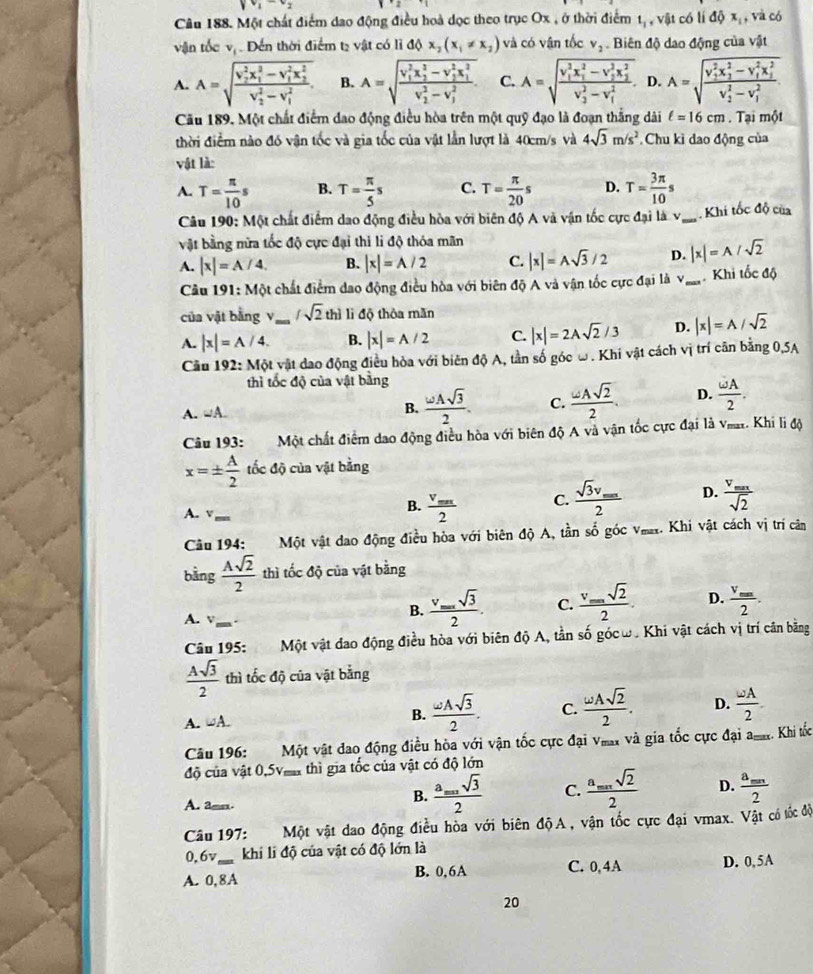 Câu 188. Một chất điểm dao động điều hoà dọc theo trục Ox , ở thời điểm t₁ , vật có li độ x₁ , và có
vận tốc v₁ . Đến thời điểm t₂ vật có li độ x₂ (x₁ ≠ x₂) và có vận tốc v₂ . Biên độ dao động của vật
A. A = √((v₂²x₁² − v₁²x₂²)/(v₂² − v₁²)). B. A = √((v₁²x₂² − v₂²x₁²)/(v₂² − v₁²)). C. A = √((v₁²x₁² − v₂²x₂²)/(v₂² − v₁²)). D. A = √((v₂²x₂² − v₁²x₁²)/(v₂² − v₁²)).
Câu 189. Một chất điểm dao động điều hòa trên một quỹ đạo là đoạn thẳng dài ℓ = 16 cm . Tại một
thời điểm nào đó vận tốc và gia tốc của vật lần lượt là 40cm/s và 4√3 m/s². Chu kì dao động của
vật là:
A. T = π/10 s B. T = π/5 s C. T = π/20 s D. T = 3π/10 s
Câu 190: Một chất điểm dao động điều hòa với biên độ A và vận tốc cực đại là v_max. Khi tốc độ của
vật bằng nửa tốc độ cực đại thì li độ thỏa mãn
A. |x| = A / 4. B. |x| = A / 2 C. |x| = A√3 / 2 D. |x| = A / √2
Câu 191: Một chất điểm dao động điều hòa với biên độ A và vận tốc cực đại là v_max. Khi tốc độ
của vật bằng v_max / √2 thì li độ thỏa mãn
A. |x| = A / 4. B. |x| = A / 2 C. |x| = 2A√2 / 3 D. |x| = A / √2
Câu 192: Một vật dao động điều hòa với biên độ A, tần số góc ω . Khi vật cách vị trí cân bằng 0,5A
thì tốc độ của vật bằng
A. ωA. B. ωA√3/2. C. ωA√2/2. D. ωA/2.
Câu 193: Một chất điểm dao động điều hòa với biên độ A và vận tốc cực đại là vmax. Khi li độ
x = ± A/2 tốc độ của vật bằng
A. v_max B. v_max/2 C. √3v_max/2 D. v_max/√2
Câu 194: Một vật dao động điều hòa với biên độ A, tần số góc vmax. Khi vật cách vị trí cân
bằng A√2/2 thì tốc độ của vật bằng
A. v_max. B. v_max√3/2. C. v_max√2/2. D. v_max/2.
Câu 195: Một vật dao động điều hòa với biên độ A, tần số góc ω . Khi vật cách vị trí cân bằng
A√3/2 thì tốc độ của vật bằng
A. ωA. B. ωA√3/2. C. ωA√2/2. D. ωA/2
Câu 196: Một vật dao động điều hòa với vận tốc cực đại vmax và gia tốc cực đại amax. Khi tốc
độ của vật 0,5vmax thì gia tốc của vật có độ lớn
A. amax. B. a_max√3/2 C. a_max√2/2 D. a_max/2
Câu 197: Một vật dao động điều hòa với biên độ A , vận tốc cực đại vmax. Vật có tốc độ
0,6v_max khi li độ của vật có độ lớn là
A. 0,8A B. 0,6A C. 0,4A D. 0,5A
20